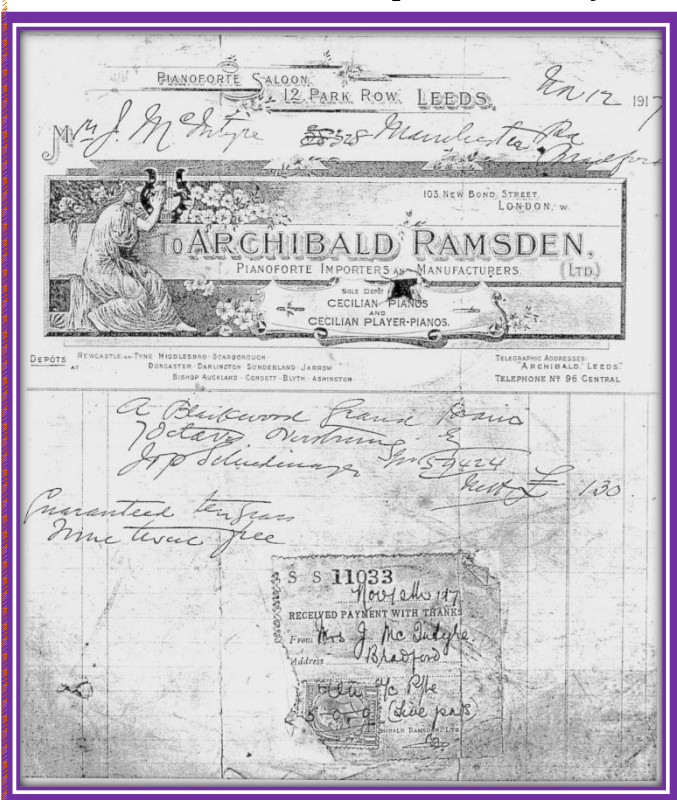 PIANOFORTE SALOON,
12 PARK ROW, LEEDS,
Nov 12 1917
Mrs J. McIntyre
328 Manchester Rd
Bradford
103, NEW BOND STREET,
LONDON, W.
To ARCHIBALD RAMSDEN,
(LTD.)
PIANOFORTE IMPORTERS AND MANUFACTURERS
SOLE DEPÔT
CECILIAN PIANOS
AND
CECILIAN PLAYER-PIANOS.
DEPÔTS AT
NEWCASTLE-ON-TYNE · MIDDLESBRO · SCARBOROUGH ·
DONCASTER · DARLINGTON · SUNDERLAND · JARROW
BISHOP AUCKLAND · CONSETT · BLYTH · ASHINGTON ·
TELEGRAPHIC ADDRESSES
"ARCHIBALD, LEEDS."
TELEPHONE Nº 96 CENTRAL
A Blackwood Grand Piano
7 Octave Overstrung
59424
Nett £ 130
Guaranteed ten years
Tune twice free
S S 11033
Nov 12th 1917
RECEIVED PAYMENT WITH THANKS
From Mrs J. Mc Intyre
Address Bradford
a/c Pffe
5 - 0 - 0 (five pds)
ARCHIBALD RAMSDEN LTD